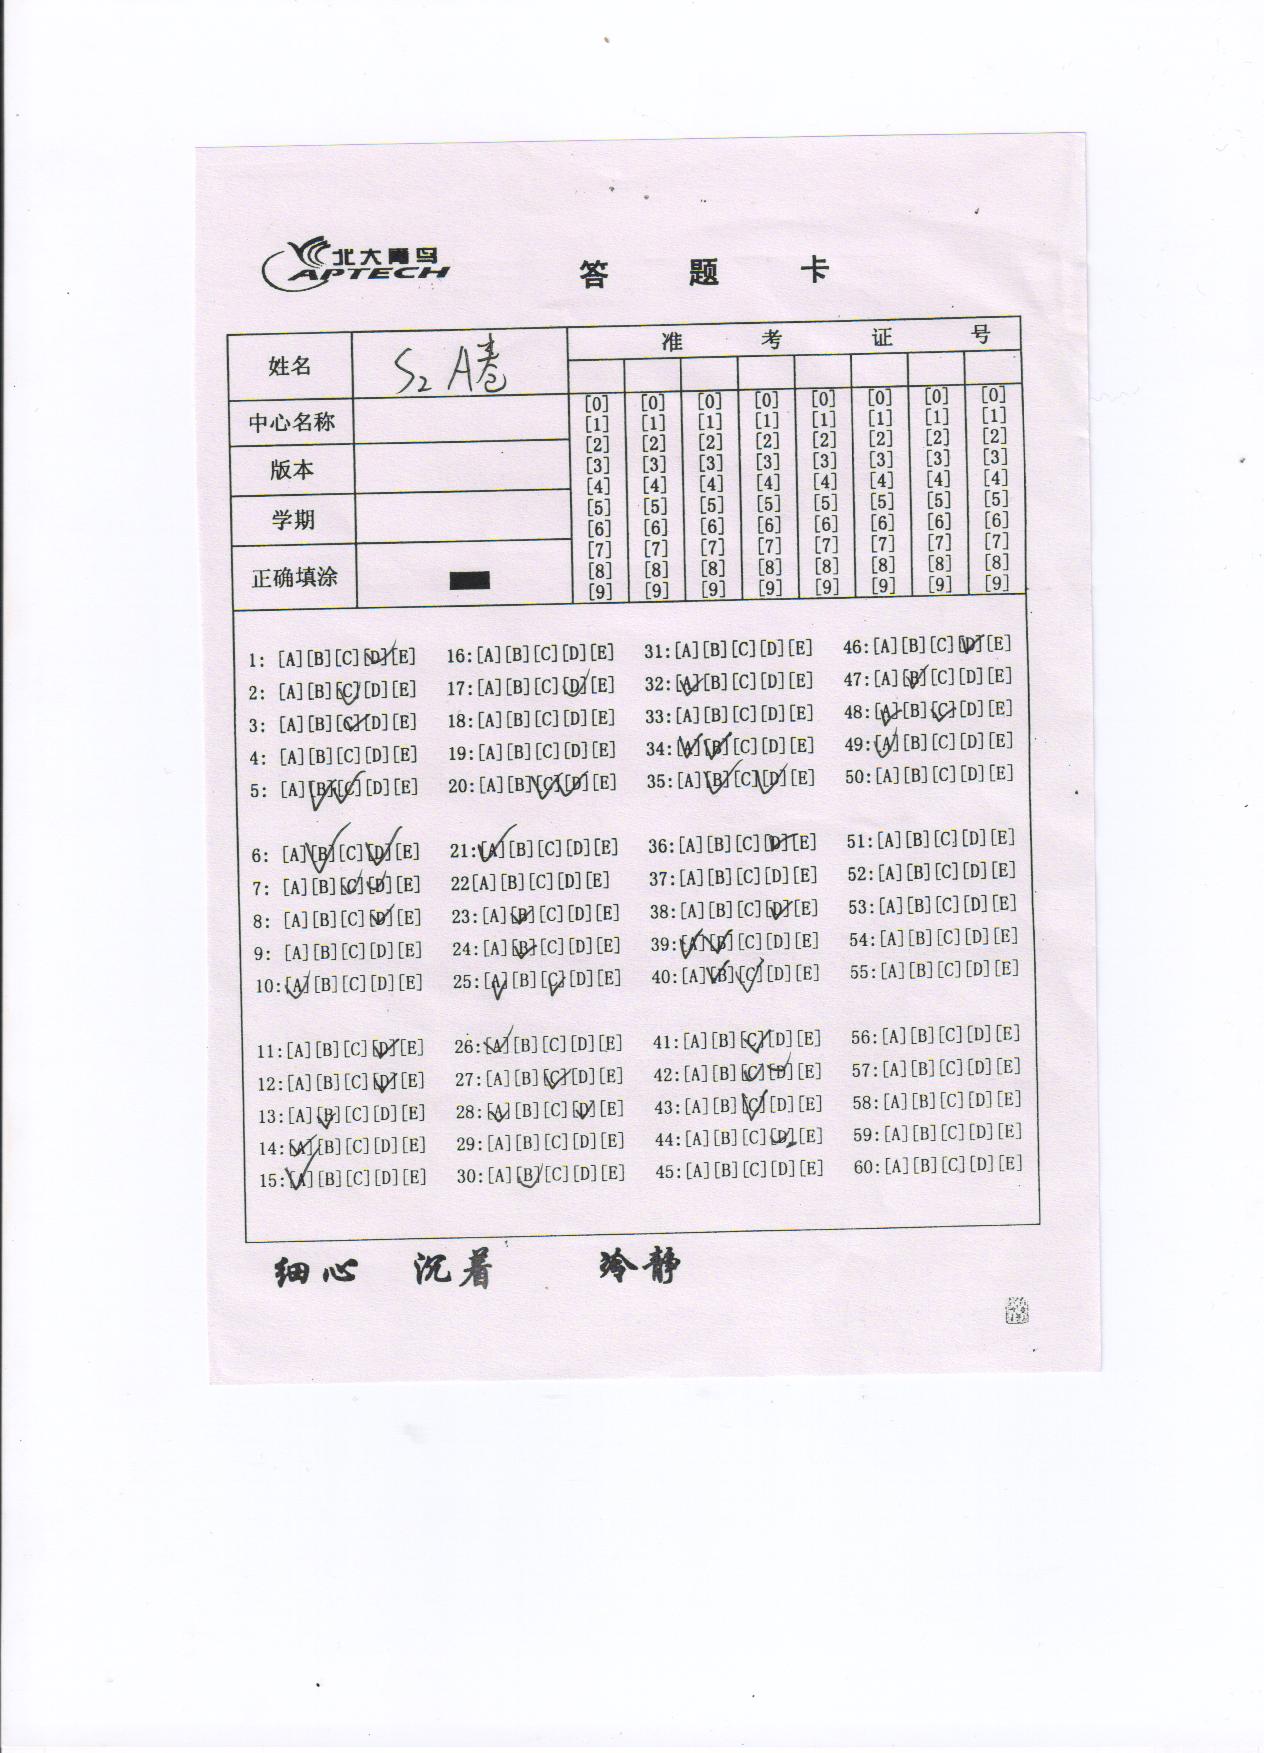 北大青鸟
APTECH
答 题 卡
姓名 S2 A卷 准 考 证 号
中心名称
版本
学期
正确填涂
[0] [0] [0] [0] [0] [0] [0] [0]
[1] [1] [1] [1] [1] [1] [1] [1]
[2] [2] [2] [2] [2] [2] [2] [2]
[3] [3] [3] [3] [3] [3] [3] [3]
[4] [4] [4] [4] [4] [4] [4] [4]
[5] [5] [5] [5] [5] [5] [5] [5]
[6] [6] [6] [6] [6] [6] [6] [6]
[7] [7] [7] [7] [7] [7] [7] [7]
[8] [8] [8] [8] [8] [8] [8] [8]
[9] [9] [9] [9] [9] [9] [9] [9]
1: [A][B][C][D][E] 16:[A][B][C][D][E] 31:[A][B][C][D][E] 46:[A][B][C][D][E]
2: [A][B][C][D][E] 17:[A][B][C][D][E] 32:[A][B][C][D][E] 47:[A][B][C][D][E]
3: [A][B][C][D][E] 18:[A][B][C][D][E] 33:[A][B][C][D][E] 48:[A][B][C][D][E]
4: [A][B][C][D][E] 19:[A][B][C][D][E] 34:[A][B][C][D][E] 49:[A][B][C][D][E]
5: [A][B][C][D][E] 20:[A][B][C][D][E] 35:[A][B][C][D][E] 50:[A][B][C][D][E]
6: [A][B][C][D][E] 21:[A][B][C][D][E] 36:[A][B][C][D][E] 51:[A][B][C][D][E]
7: [A][B][C][D][E] 22[A][B][C][D][E] 37:[A][B][C][D][E] 52:[A][B][C][D][E]
8: [A][B][C][D][E] 23:[A][B][C][D][E] 38:[A][B][C][D][E] 53:[A][B][C][D][E]
9: [A][B][C][D][E] 24:[A][B][C][D][E] 39:[A][B][C][D][E] 54:[A][B][C][D][E]
10:[A][B][C][D][E] 25:[A][B][C][D][E] 40:[A][B][C][D][E] 55:[A][B][C][D][E]
11:[A][B][C][D][E] 26:[A][B][C][D][E] 41:[A][B][C][D][E] 56:[A][B][C][D][E]
12:[A][B][C][D][E] 27:[A][B][C][D][E] 42:[A][B][C][D][E] 57:[A][B][C][D][E]
13:[A][B][C][D][E] 28:[A][B][C][D][E] 43:[A][B][C][D][E] 58:[A][B][C][D][E]
14:[A][B][C][D][E] 29:[A][B][C][D][E] 44:[A][B][C][D][E] 59:[A][B][C][D][E]
15:[A][B][C][D][E] 30:[A][B][C][D][E] 45:[A][B][C][D][E] 60:[A][B][C][D][E]
细心 沉着 冷静